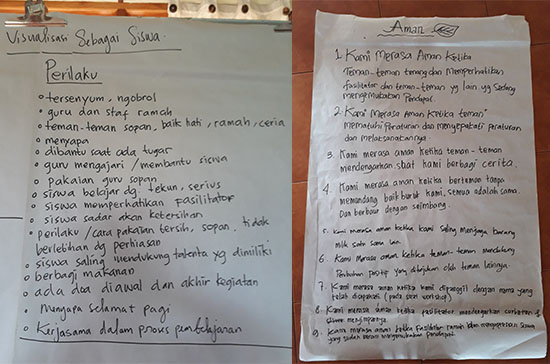 Visualisasi Sebagai Siswa.
Perilaku
• tersenyum, ngobrol
• guru dan staf ramah
• teman-teman sopan, baik hati, ramah, ceria
• menyapa
• dibantu saat ada tugas
• guru mengajari / membantu siswa
• pakaian guru sopan
• siswa belajar dg. tekun, serius
• siswa memperhatikan Fasilitator
• siswa sadar akan kebersihan
• perilaku / cara pakaian bersih, sopan, tidak
berlebihan dg perhiasan
• siswa saling mendukung talenta yg dimiliki
• berbagi makanan
• ada doa diawal dan akhir kegiatan
• Menyapa Selamat pagi
• Kerjasama dalam proses pembelajaran
Aman
1. Kami Merasa Aman Ketika
Teman-teman tenang dan Memperhatikan
fasilitator dan teman-teman yg lain yg Sedang
mengemukakan Pendapat.
2. Kami Merasa Aman Ketika teman
Mematuhi Peraturan dan Menyepakati Peraturan
dan Melaksanakannya.
3. Kami merasa aman ketika teman-teman
mendengarkan saat kami berbagi cerita.
4. Kami merasa aman ketika berteman tanpa
memandang baik buruk kami, semua adalah sama.
Dan berbaur dengan seimbang.
5. Kami merasa aman ketika kami saling menjaga barang
milik satu sama lain.
6. Kami Merasa aman ketika teman-teman mendukung
Perubahan positif yang ditunjukan oleh teman lainnya.
7. Kami merasa aman ketika kami dipanggil dengan nama yang
telah disepakati (pada sesi workshop)
8. Kami merasa aman ketika fasilitator mendengarkan curhatan
9. Kami merasa aman ketika fasilitator ramah dalam mengapresiasi siswa
yang sudah berani mengemukakan pendapat.